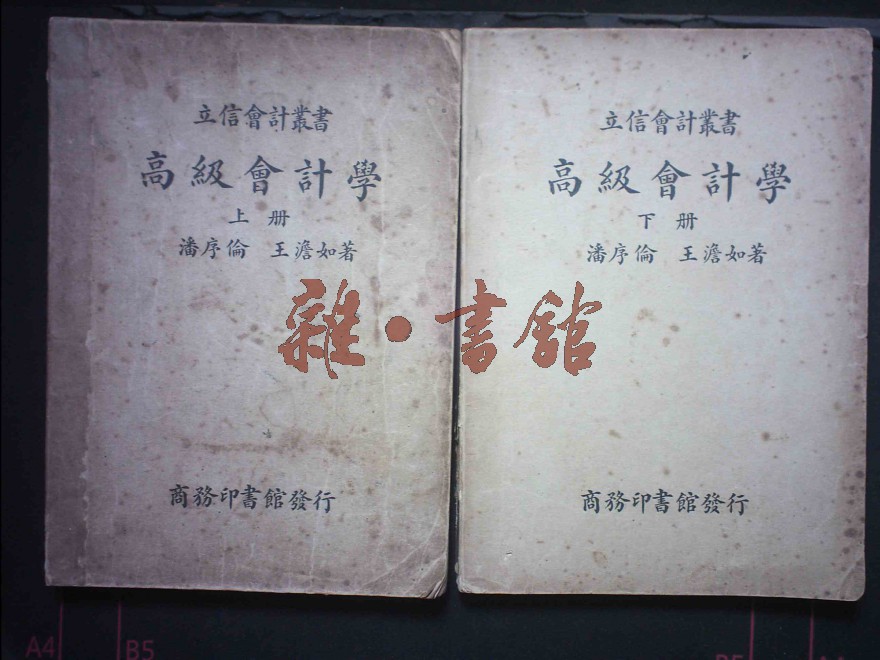 立信會計叢書
高級會計學
上册
潘序倫 王澹如著
商務印書館發行
立信會計叢書
高級會計學
下册
潘序倫 王澹如著
商務印書館發行
雜·書館
A4
B5